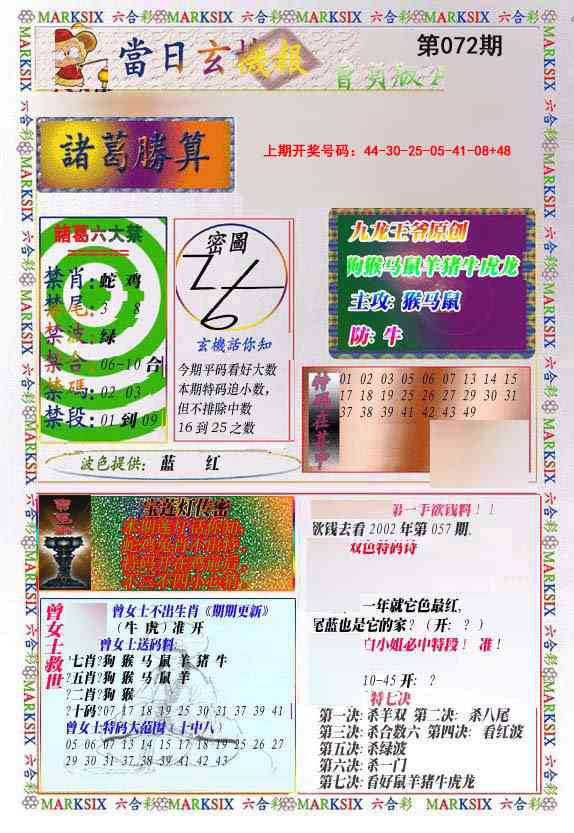 MARKSIX 六合彩 MARKSIX 六合彩 MARKSIX 六合彩 MARKSIX 六合彩 MARKSIX 六合彩
當日玄機報
第072期
諸葛勝算
上期开奖号码：44-30-25-05-41-08+48
諸葛六大禁
禁肖:蛇 鸡
禁尾:3 8
禁波:绿
禁合:06-10 合
禁碼:02 03
禁段:01 到 09
密圖
玄機話你知
今期平码看好大数
本期特码追小数，
但不排除中数
16 到 25 之数
九龙王爷原创
狗猴马鼠羊猪牛虎龙
主攻: 猴马鼠
防: 牛
特码在其中
01 02 03 05 06 07 13 14 15
17 18 19 25 26 27 29 30 31
37 38 39 41 42 43 49
波色提供: 蓝 红
宝莲灯传密
第一手欲钱料！！
欲钱去看 2002 年第 057 期.
双色特码诗
一年就它色最红,
尾蓝也是它的家? (开: ? )
白小姐必中特段! 准!
10-45 开: ?
特七决
第一决: 杀羊双 第二决: 杀八尾
第三决: 杀合数六 第四决: 看红波
第五决: 杀绿波
第六决: 杀一门
第七决: 看好鼠羊猪牛虎龙
曾女士救世
曾女士不出生肖《期期更新》
(牛 虎) 准 开
曾女士送码料:
?七肖?狗 猴 马 鼠 羊 猪 牛
?五肖?狗 猴 马 鼠 羊
?二肖?狗 猴
?十码?07 17 18 19 25 30 31 37 39 41
曾女士特码大范围 (十中八)
05 06 07 13 14 15 17 18 19 25 26 27
29 30 31 37 38 39 41 42 43
MARKSIX 六合彩 MARKSIX 六合彩 MARKSIX 六合彩 MARKSIX 六合彩 MARKSIX 六合彩